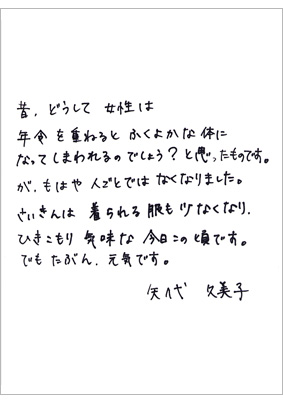 昔、どうして 女性は
年令を重ねると ふくよかな体に
なってしまわれるのでしょう？と思ったものです。
が、もはや 人ごとでは なくなりました。
さいきんは 着られる服も少なくなり、
ひきこもり 気味な 今日この頃です。
でも たぶん、元気です。
矢代 久美子